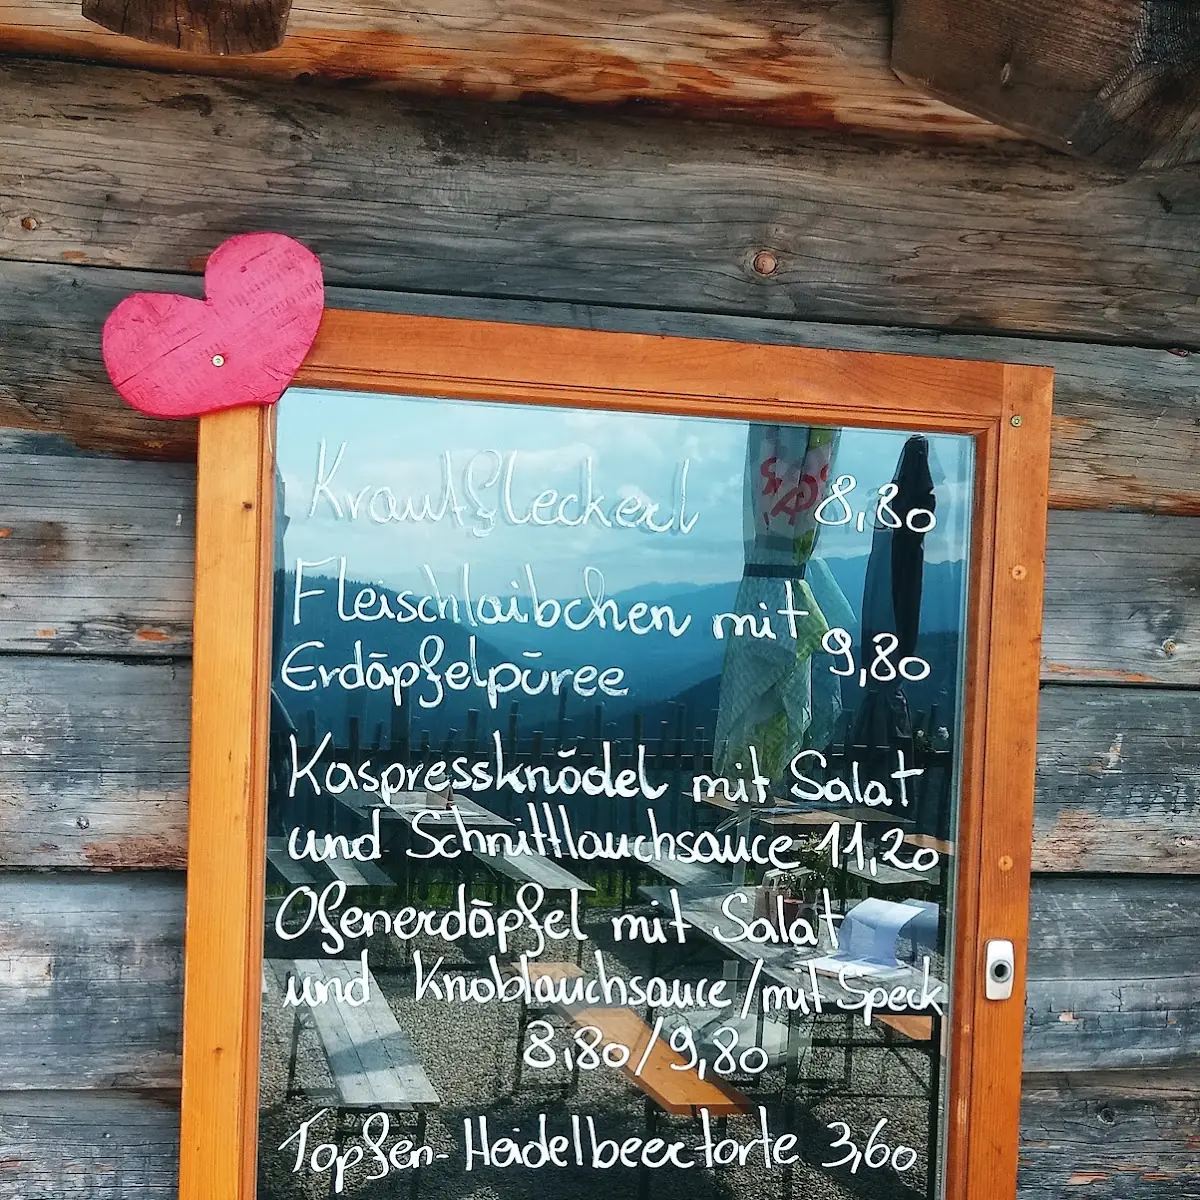 Krautfleckerl 8,80
Fleischlaibchen mit
Erdäpfelpüree 9,80
Kaspressknödel mit Salat
und Schnittlauchsauce 11,20
Ofenerdäpfel mit Salat
und Knoblauchsauce/mit Speck
8,80/9,80
Topfen-Heidelbeertorte 3,60